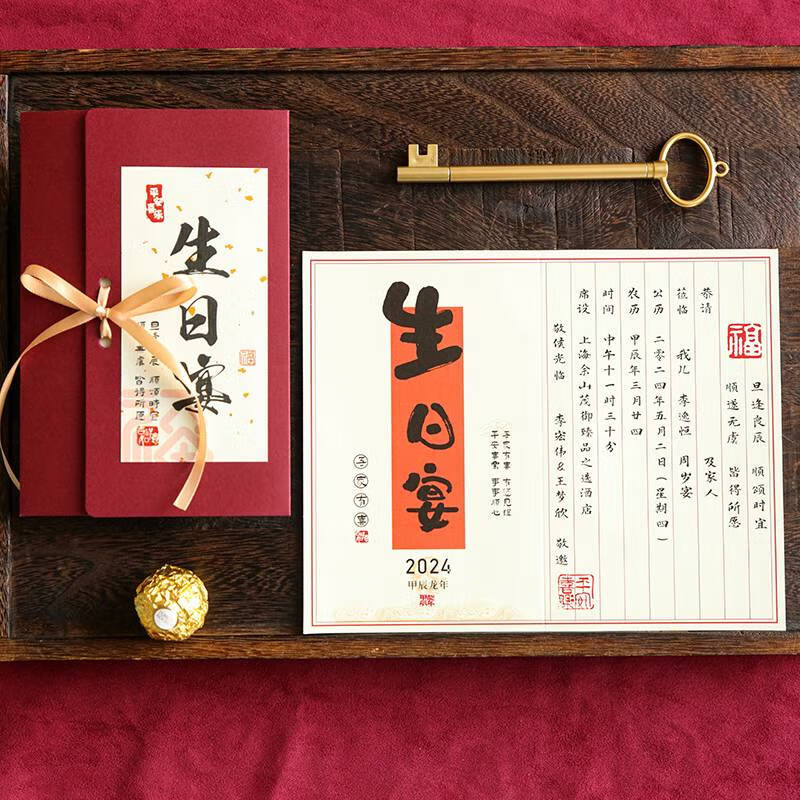 平安喜乐
生日宴
順頌時宜
皆得所愿
生日宴
2024
甲辰龙年
吾家有喜
平安喜乐 事事顺心
福
旦逢良辰 顺颂时宜
顺遂无虞 皆得所愿
恭请 及家人
莅临 我儿 李逸恒 周岁宴
公历 二零二四年五月二日(星期四)
农历 甲辰年三月廿四
时间 中午十一时三十分
席设 上海佘山茂御臻品之选酒店
敬侯光临 李宏伟&王梦欣 敬邀
平安喜乐